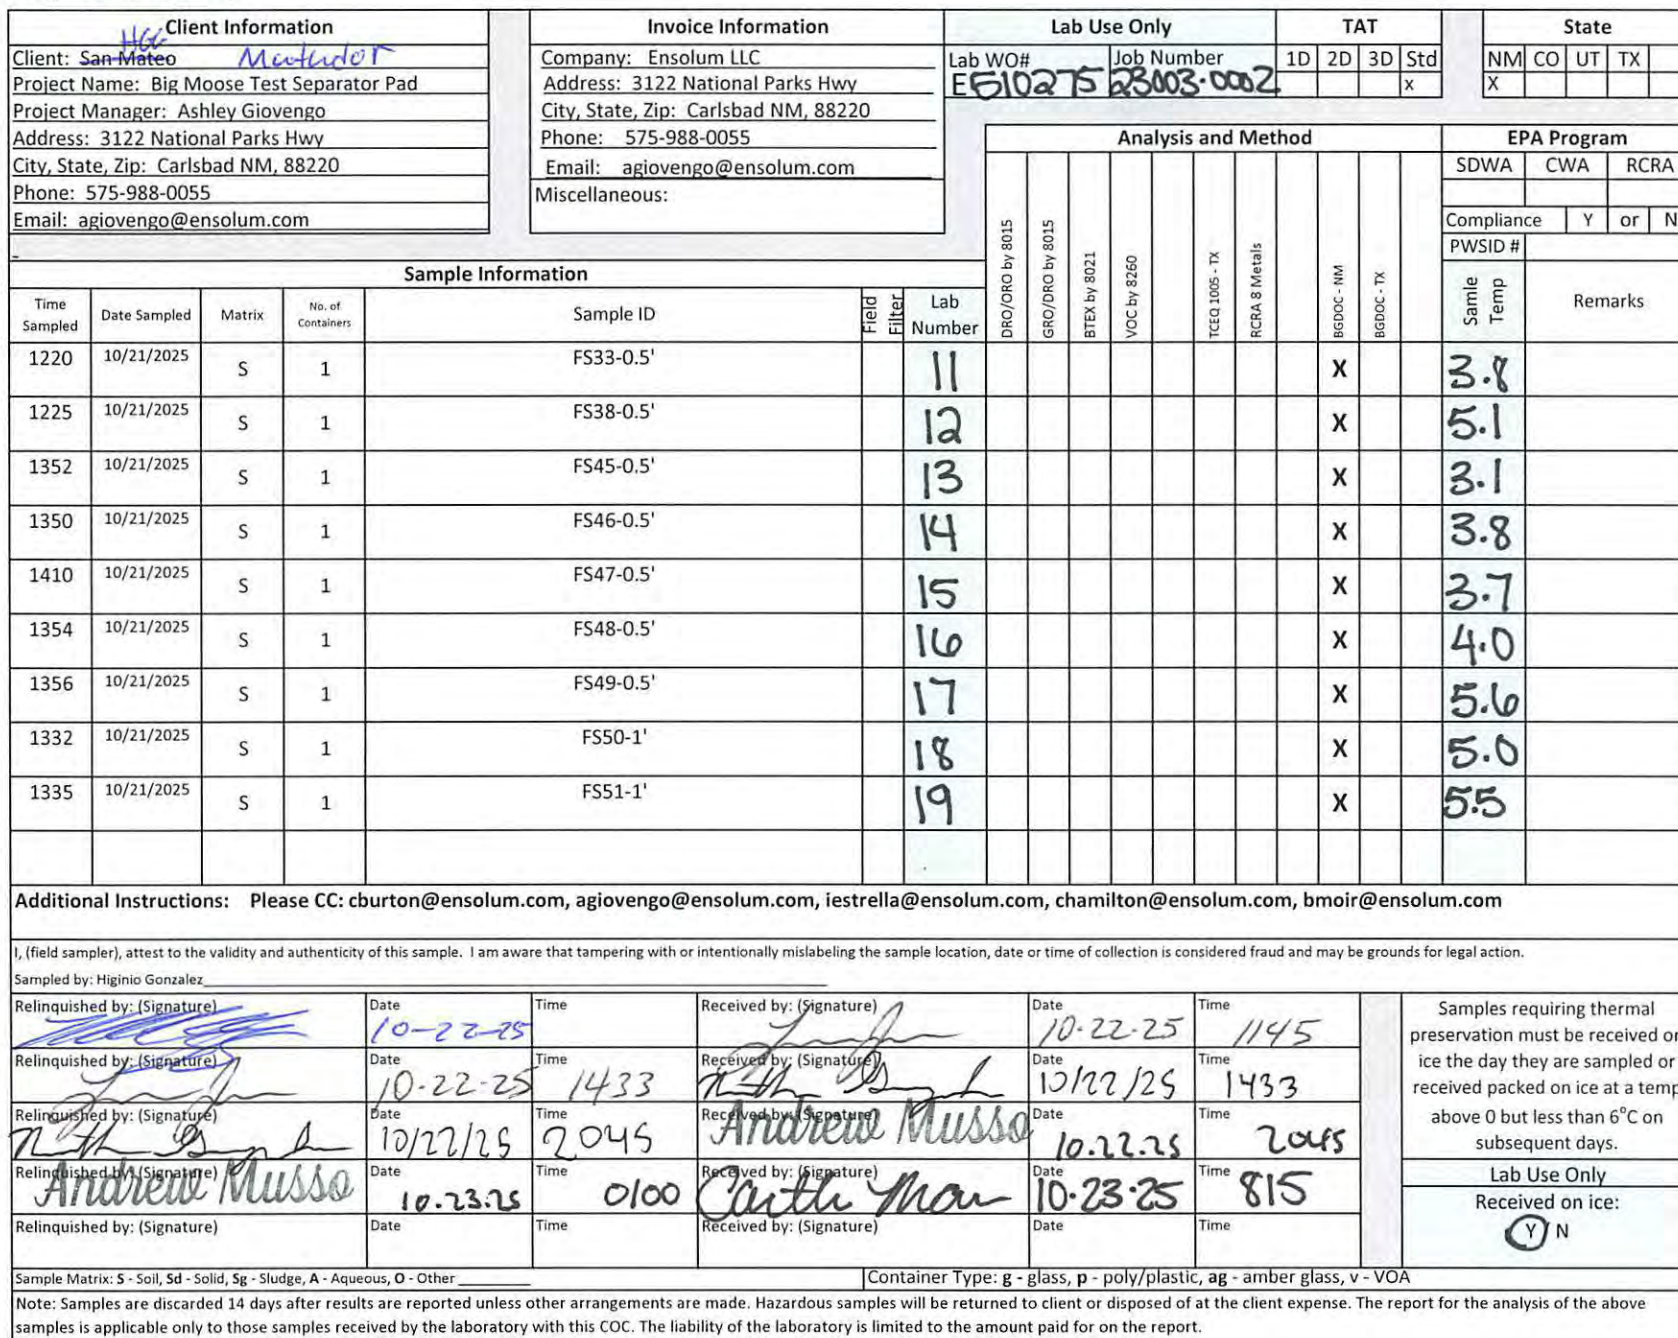 Client Information
HGC
Client: San Mateo Matador
Project Name: Big Moose Test Separator Pad
Project Manager: Ashley Giovengo
Address: 3122 National Parks Hwy
City, State, Zip: Carlsbad NM, 88220
Phone: 575-988-0055
Email: agiovengo@ensolum.com
Invoice Information
Company: Ensolum LLC
Address: 3122 National Parks Hwy
City, State, Zip: Carlsbad NM, 88220
Phone: 575-988-0055
Email: agiovengo@ensolum.com
Miscellaneous:
Lab Use Only
Lab WO# Job Number
E510275 23003-0002
TAT
1D 2D 3D Std
x
State
NM CO UT TX
X
Analysis and Method
EPA Program
SDWA CWA RCRA
Compliance Y or N
PWSID #
Sample Information
Time Sampled Date Sampled Matrix No. of Containers Sample ID Field Filter Lab Number DRO/ORO by 8015 GRO/DRO by 8015 BTEX by 8021 VOC by 8260 TCEQ 1005 - TX RCRA 8 Metals BGDOC - NM BGDOC - TX Samle Temp Remarks
1220 10/21/2025 S 1 FS33-0.5' 11 X 3.8
1225 10/21/2025 S 1 FS38-0.5' 12 X 5.1
1352 10/21/2025 S 1 FS45-0.5' 13 X 3.1
1350 10/21/2025 S 1 FS46-0.5' 14 X 3.8
1410 10/21/2025 S 1 FS47-0.5' 15 X 3.7
1354 10/21/2025 S 1 FS48-0.5' 16 X 4.0
1356 10/21/2025 S 1 FS49-0.5' 17 X 5.6
1332 10/21/2025 S 1 FS50-1' 18 X 5.0
1335 10/21/2025 S 1 FS51-1' 19 X 5.5
Additional Instructions: Please CC: cburton@ensolum.com, agiovengo@ensolum.com, iestrella@ensolum.com, chamilton@ensolum.com, bmoir@ensolum.com
I, (field sampler), attest to the validity and authenticity of this sample. I am aware that tampering with or intentionally mislabeling the sample location, date or time of collection is considered fraud and may be grounds for legal action.
Sampled by: Higinio Gonzalez
Relinquished by: (Signature) Date 10-22-25 Time Received by: (Signature) Date 10-22-25 Time 1145
Relinquished by: (Signature) Date 10-22-25 Time 1433 Received by: (Signature) Date 10/22/25 Time 1433
Relinquished by: (Signature) Date 10/22/25 Time 2045 Received by: (Signature) Andrew Musso Date 10.22.25 Time 2045
Relinquished by: (Signature) Andrew Musso Date 10.23.25 Time 0100 Received by: (Signature) Date 10-23-25 Time 815
Relinquished by: (Signature) Date Time Received by: (Signature) Date Time
Samples requiring thermal
preservation must be received on
ice the day they are sampled or
received packed on ice at a temp
above 0 but less than 6°C on
subsequent days.
Lab Use Only
Received on ice:
Y / N
Sample Matrix: S - Soil, Sd - Solid, Sg - Sludge, A - Aqueous, O - Other
Container Type: g - glass, p - poly/plastic, ag - amber glass, v - VOA
Note: Samples are discarded 14 days after results are reported unless other arrangements are made. Hazardous samples will be returned to client or disposed of at the client expense. The report for the analysis of the above
samples is applicable only to those samples received by the laboratory with this COC. The liability of the laboratory is limited to the amount paid for on the report.